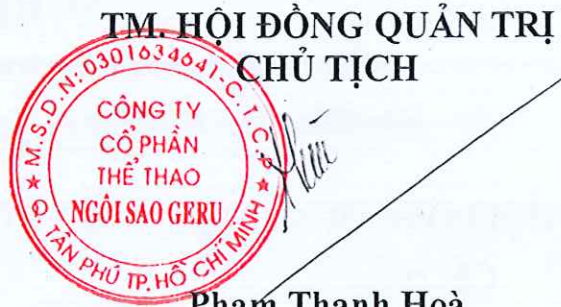 TM. HỘI ĐỒNG QUẢN TRỊ
CHỦ TỊCH
M.S.D.N: 0301634641-C.T.C.P
CÔNG TY
CỔ PHẦN
THỂ THAO
NGÔI SAO GERU
Q. TÂN PHÚ TP. HỒ CHÍ MINH
Phạm Thanh Hoà